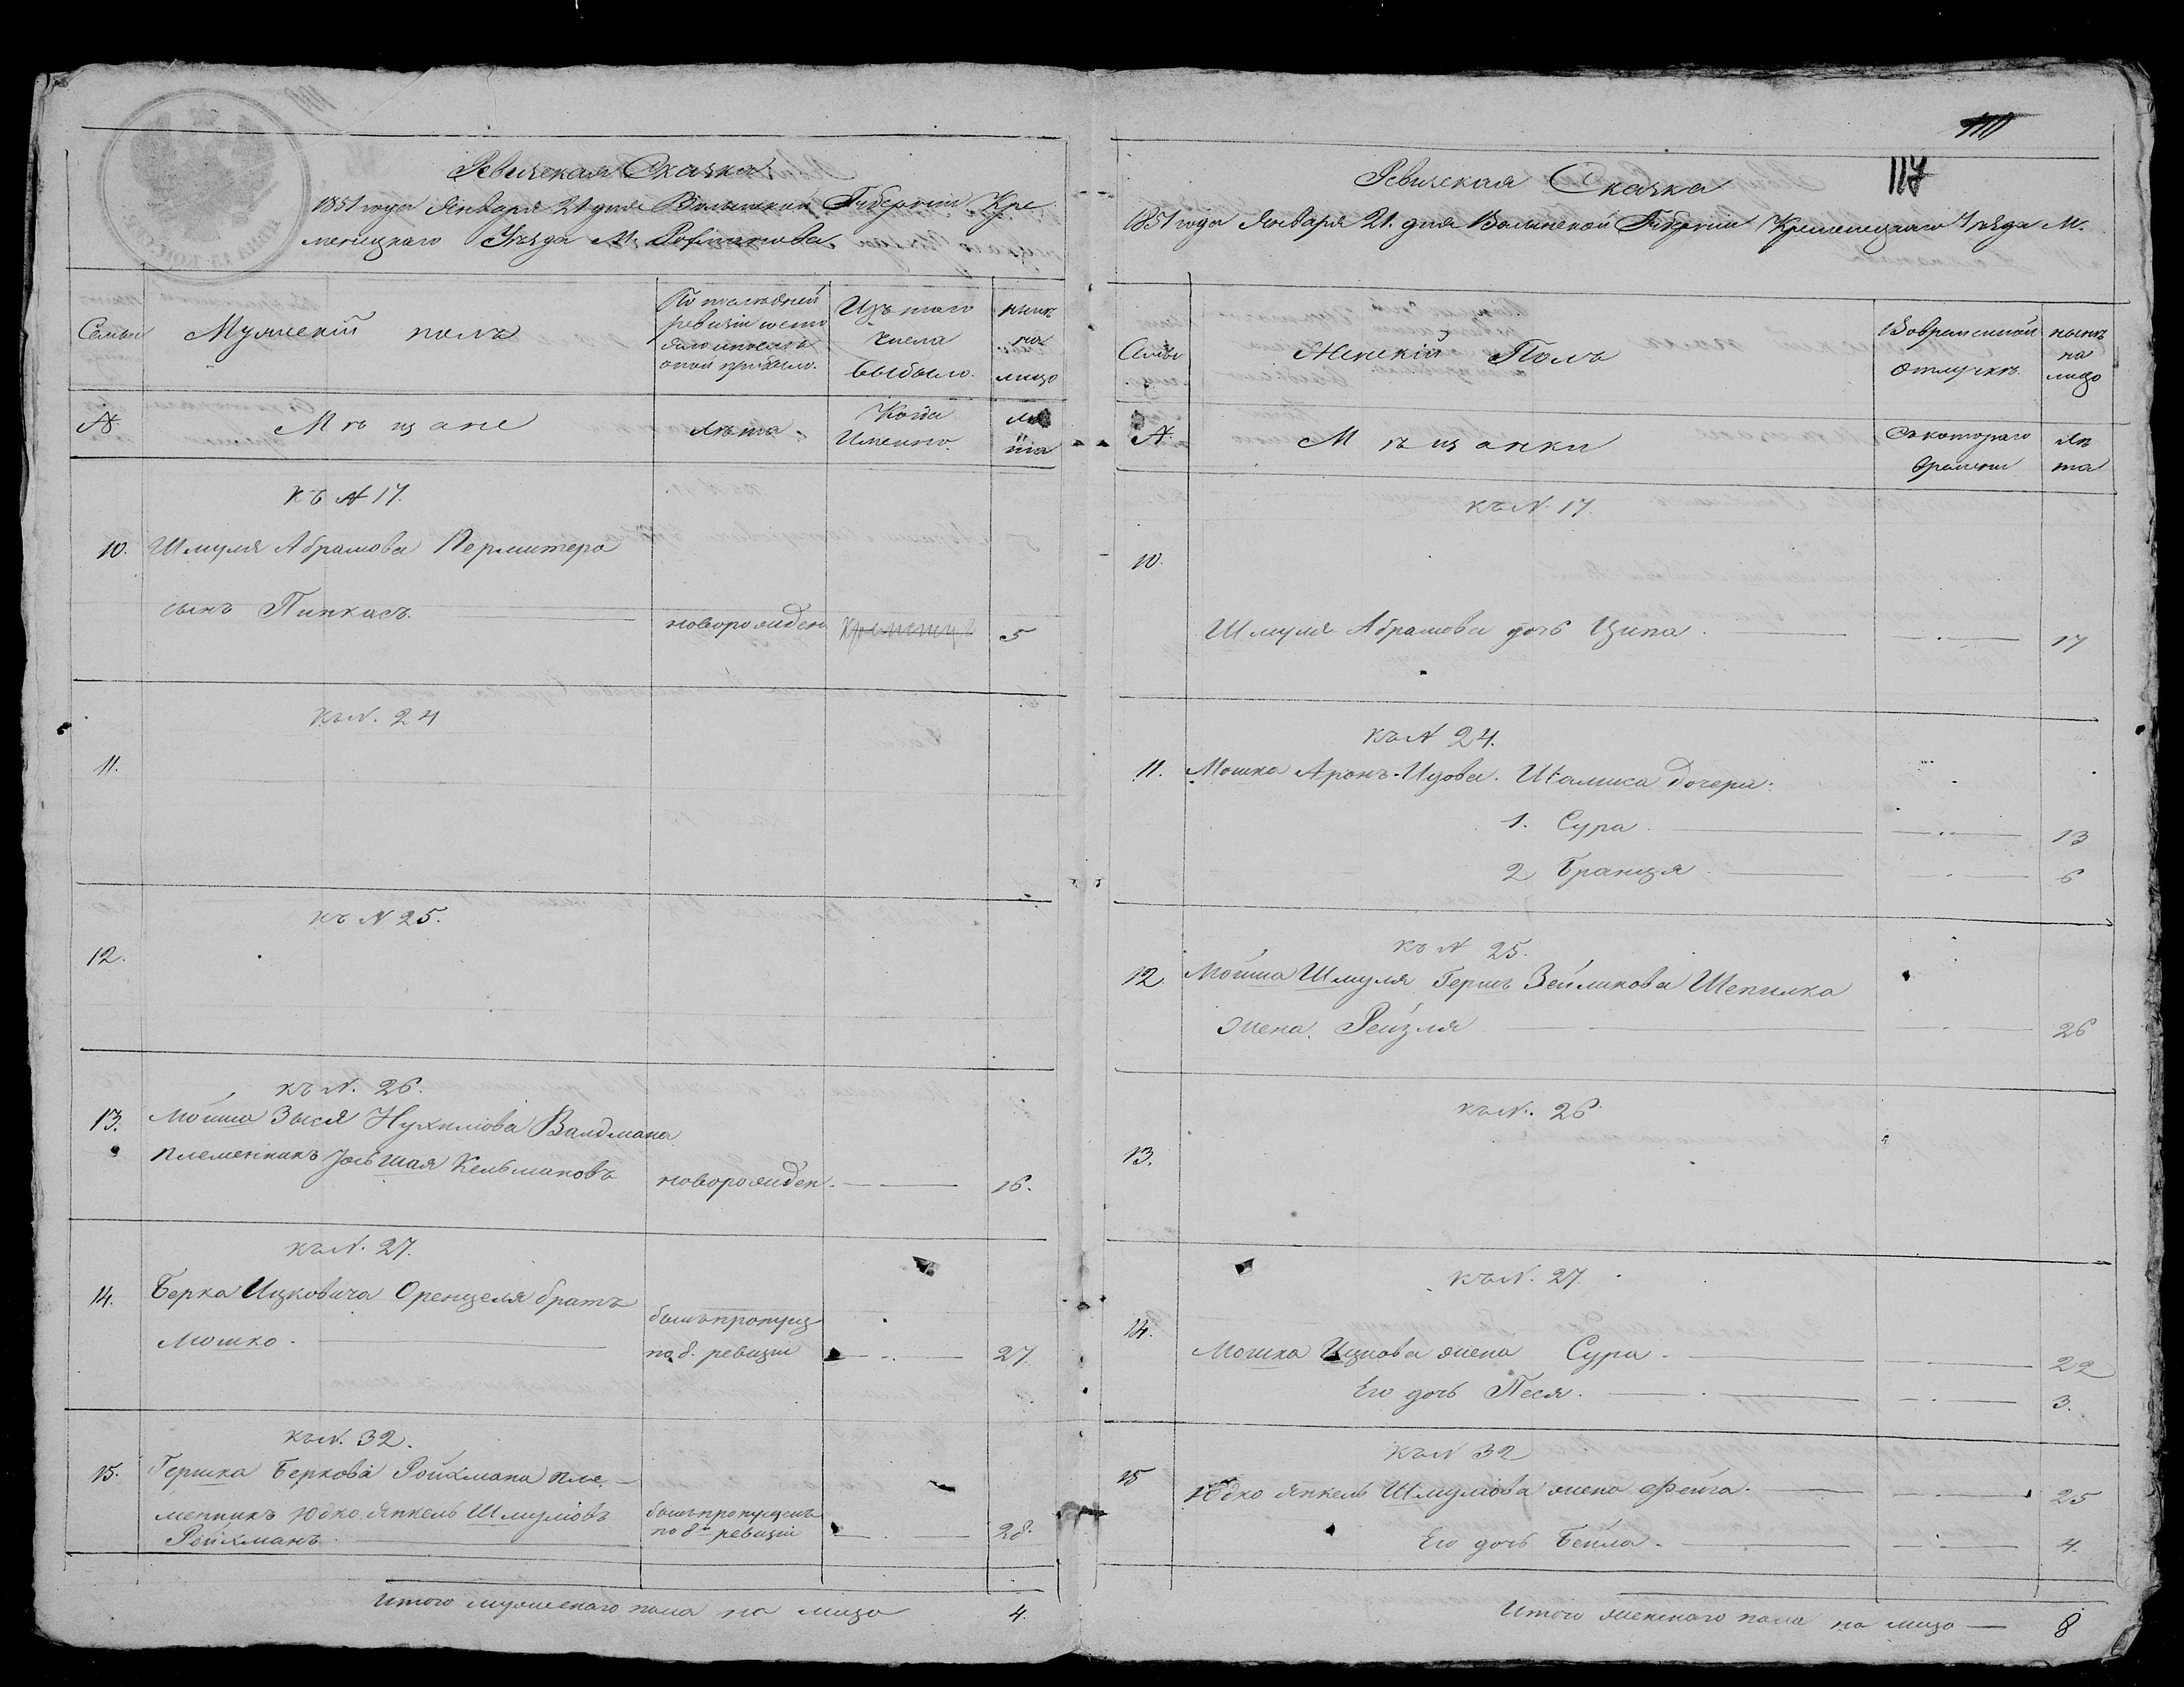 Ревижская Сказка
1851 года Января 21 дня Волынской Губернии Кре
менецкаго Уѣзда М.
Семьи
Мужескій полъ
По последней
ревизіи состо
яло и после
оной прибыло.
Изъ того
числа
выбыло.
нынѣ
на
лицо
№
Мѣщане
Лѣта
Когда
Именно.
лѣ
та
къ № 17.
10. Шмуля Абрамова Перлмитера
сынъ Пинкасъ. новорожден 5
къ N. 24
11.
къ N 25.
12.
къ N. 26.
13. Мойша Зыся Нухимова Валдмана
племенникъ Іось Шая Кельмановъ новорожден. 16.
къ N. 27.
14. Берка Ицковича Оренцеля братъ
Мошко. былъ пропущ
по 8. ревизіи 27.
къ N. 32.
15. Гершка Беркова Ройхмана пле
менникъ Юдко Янкель Шмулювъ
Ройхманъ былъ пропущенъ
по 8й ревизіи 28.
Итого мужескаго пола на лицо 4.
117
Ревижская Сказка
1851 года Января 21. дня Волынской Губерніи Кременецкаго Уѣзда М.
Семьи
Женскій Полъ
Во временной
отлучкѣ
нынѣ
на
лицо
№
Мѣщанки
Съ котораго
времени
лѣ
та
къ N. 17.
10.
Шмуля Абрамова дочь Ципа. 17
къ N 24.
11. Мошка Аронъ-Идова. дочери:
1. Сура 13
2 Бранця 6
къ N 25.
12. Мойша Шмуля Гершъ Зейликова Шепилка
жена. Рейзля 26
къ N. 26.
13.
къ N. 27.
14.
Мошка Ицкова жена Сура. 22
Его дочь Песя. 3.
къ N 32
15 Юдко Янкель Шмулюва жена Фейга. 25
Его дочь Бейла. 4.
Итого женскаго пола на лицо 8